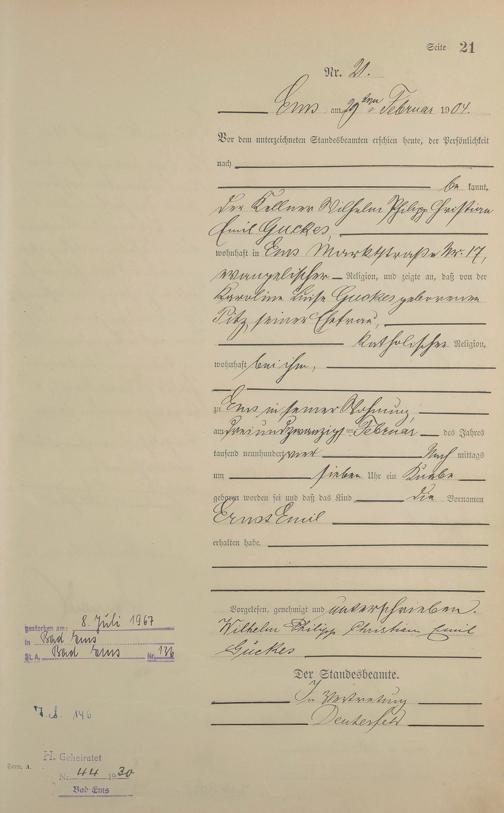 Seite 21
Nr. 21.
Ems am 29ten Februar 1904.
Vor dem unterzeichneten Standesbeamten erschien heute, der Persönlichkeit
nach
be kannt,
der Kellner Wilhelm Philipp Christian
Emil Guckes,
wohnhaft in Ems Marktstraße Nr. 17,
evangelischer Religion, und zeigte an, daß von der
Karoline Luise Guckes geborenen
Pitz, seiner Ehefrau,
katholischer Religion,
wohnhaft bei ihm,
zu Ems in seiner Wohnung
am dreiundzwanzigsten Februar des Jahres
tausend neunhundert vier Nach mittags
um sieben Uhr ein Knabe
geboren worden sei und daß das Kind die Vornamen
Ernst Emil
erhalten habe.
Vorgelesen, genehmigt und unterschrieben.
Wilhelm Philipp Christian Emil
Guckes
Der Standesbeamte.
In Vertretung
gestorben am: 8. Juli 1967
in Bad Ems
St. A. Bad Ems Nr. 136
146
H. Geheiratet
Nr. 44 1930
Bad Ems
Form. A.